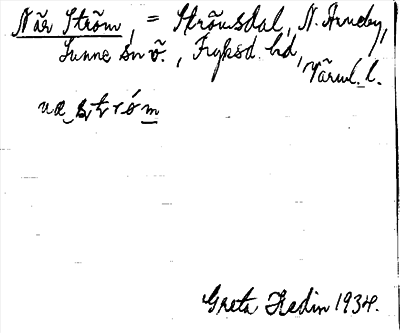 När Ström, = Strömsdal, N. Årneby,
Sunne sn v., Fryksd. hd,
Värml. l.
næ ström
Greta Hedin 1934.